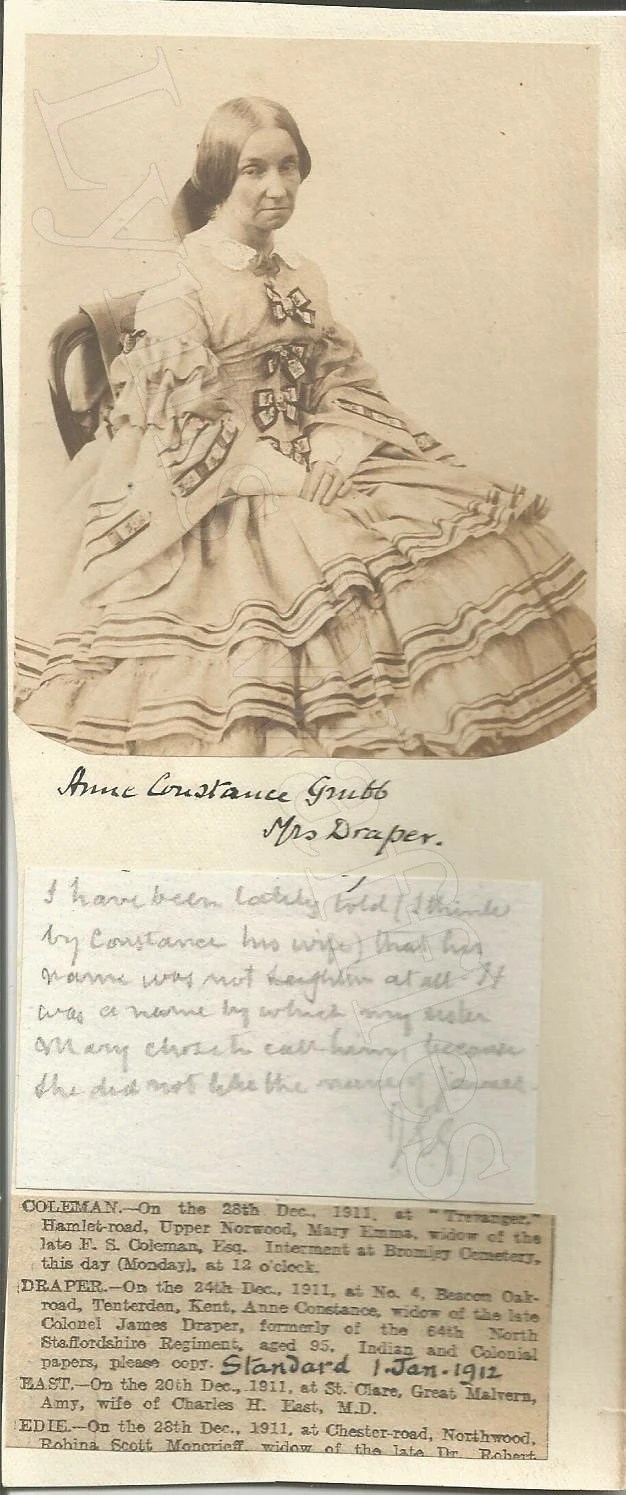 Anne Constance Grubb
Mrs Draper.
I have been lately told (I think
by Constance his wife) that his
name was not Leighton at all. It
was a name by which my sister
Mary chose to call him, because
she did not like the name of James.
COLEMAN.—On the 28th Dec., 1911, at "Trevanger,"
Hamlet-road, Upper Norwood, Mary Emma, widow of the
late F. S. Coleman, Esq. Interment at Bromley Cemetery,
this day (Monday), at 12 o'clock.
DRAPER.—On the 24th Dec., 1911, at No. 4, Beacon Oak-
road, Tenterden, Kent, Anne Constance, widow of the late
Colonel James Draper, formerly of the 64th North
Staffordshire Regiment, aged 95. Indian and Colonial
papers, please copy. Standard 1. Jan. 1912
EAST.—On the 20th Dec., 1911, at St. Clare, Great Malvern,
Amy, wife of Charles H. East, M.D.
EDIE.—On the 28th Dec., 1911, at Chester-road, Northwood,
Robina Scott Moncrieff, widow of the late Dr. Robert